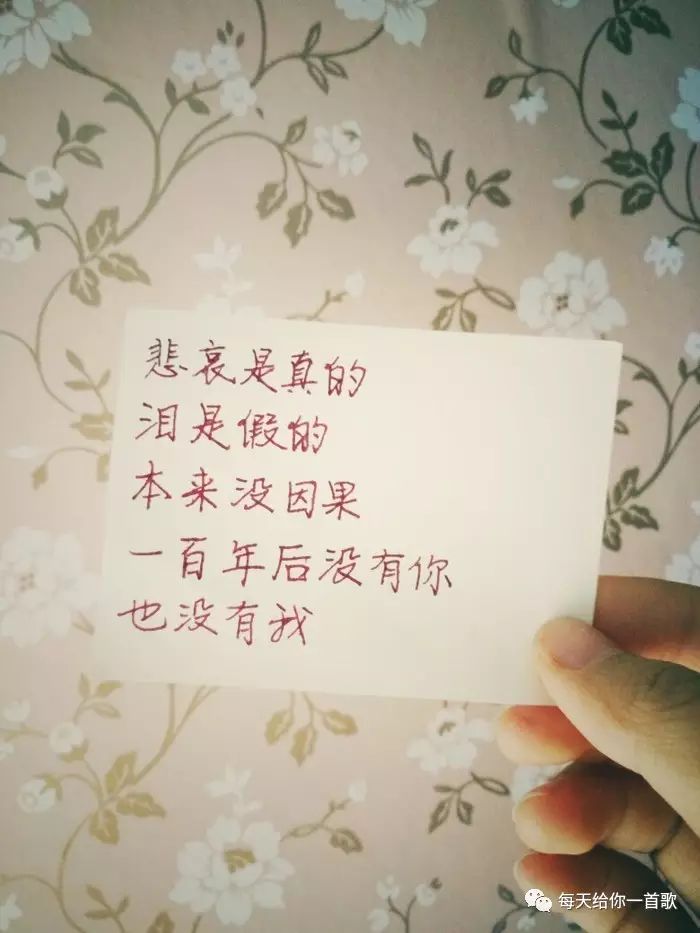 悲哀是真的
泪是假的
本来没因果
一百年后没有你
也没有我
每天给你一首歌